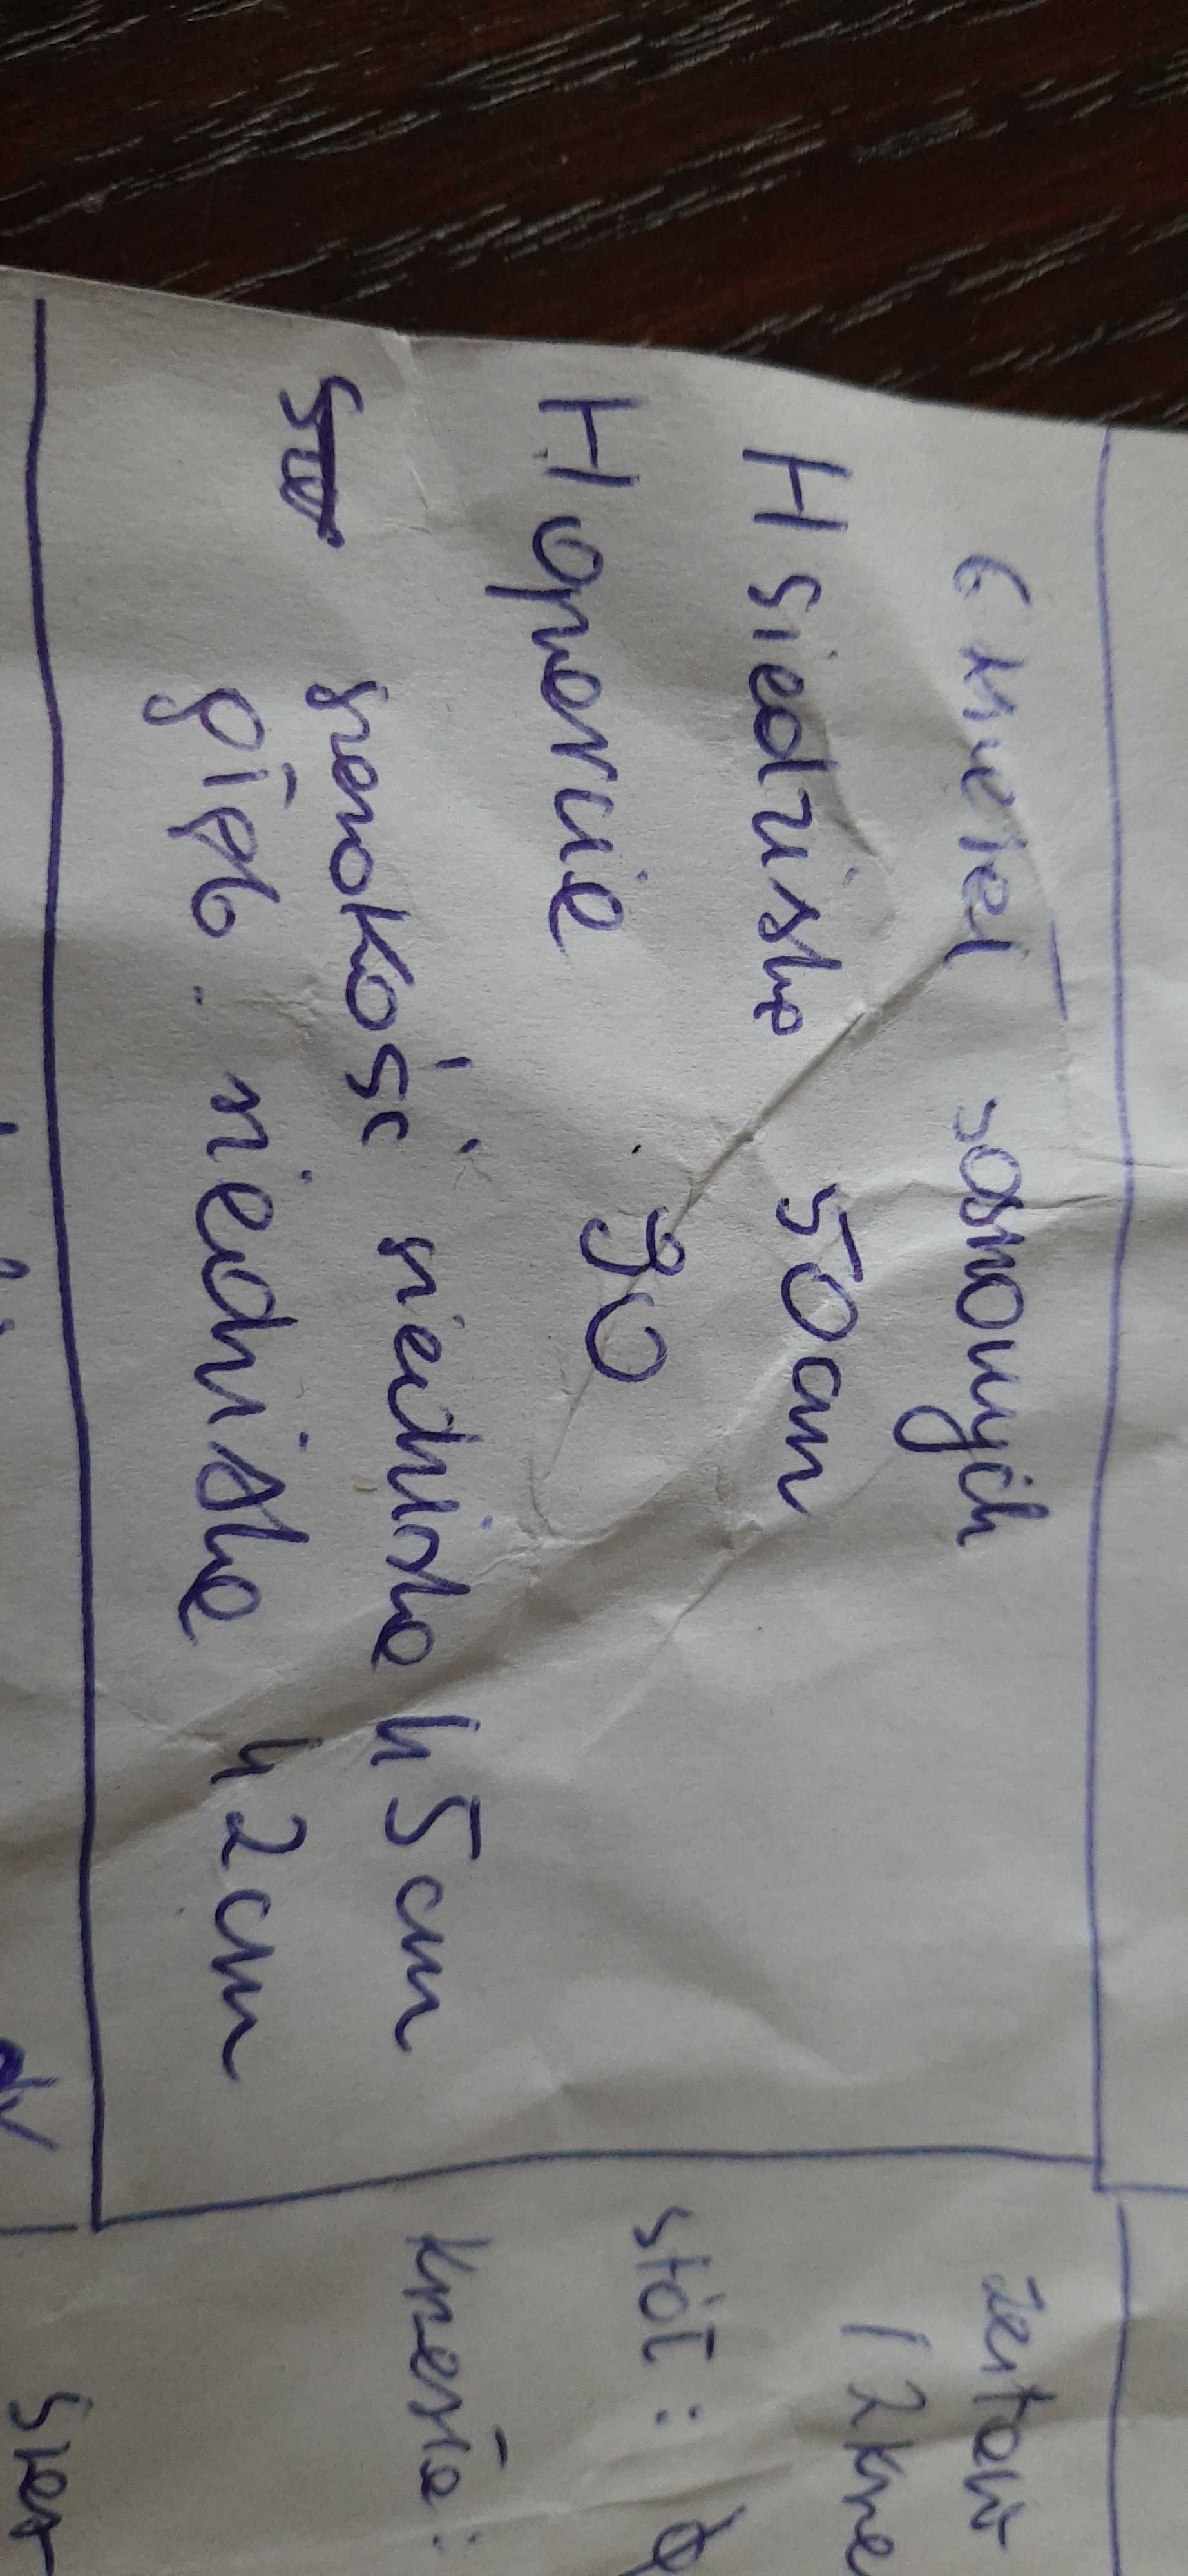 6 krzeseł sosnowych
H siedziska 50cm
H oparcie 90
szerokość siedziska 45cm
głęb. siedziska 42cm
zestaw
stół:
krzesła: